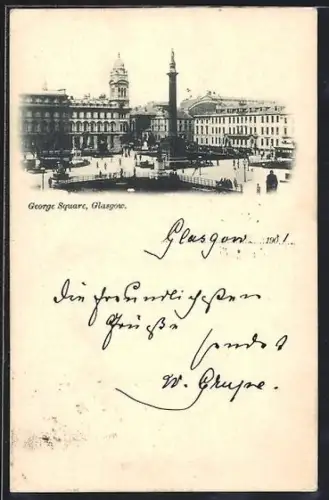 George Square, Glasgow.
Glasgow 1901
Die freundlichsten
Grüße
sendet
W. Grupe.